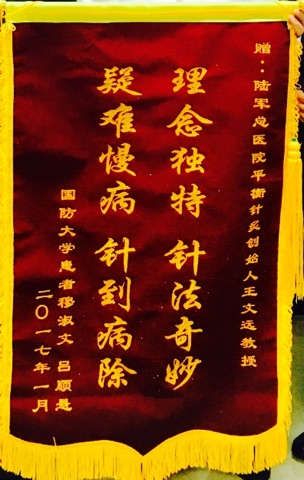 赠：陆军总医院平衡针灸创始人王文远教授
理念独特 针法奇妙
疑难慢病 针到病除
国防大学患者穆淑文 吕顺悬
二〇一七年一月